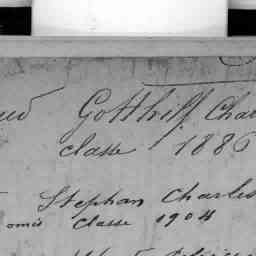 Gotthilf Char
classe 1886
Stephan Charles
omis Classe 1904